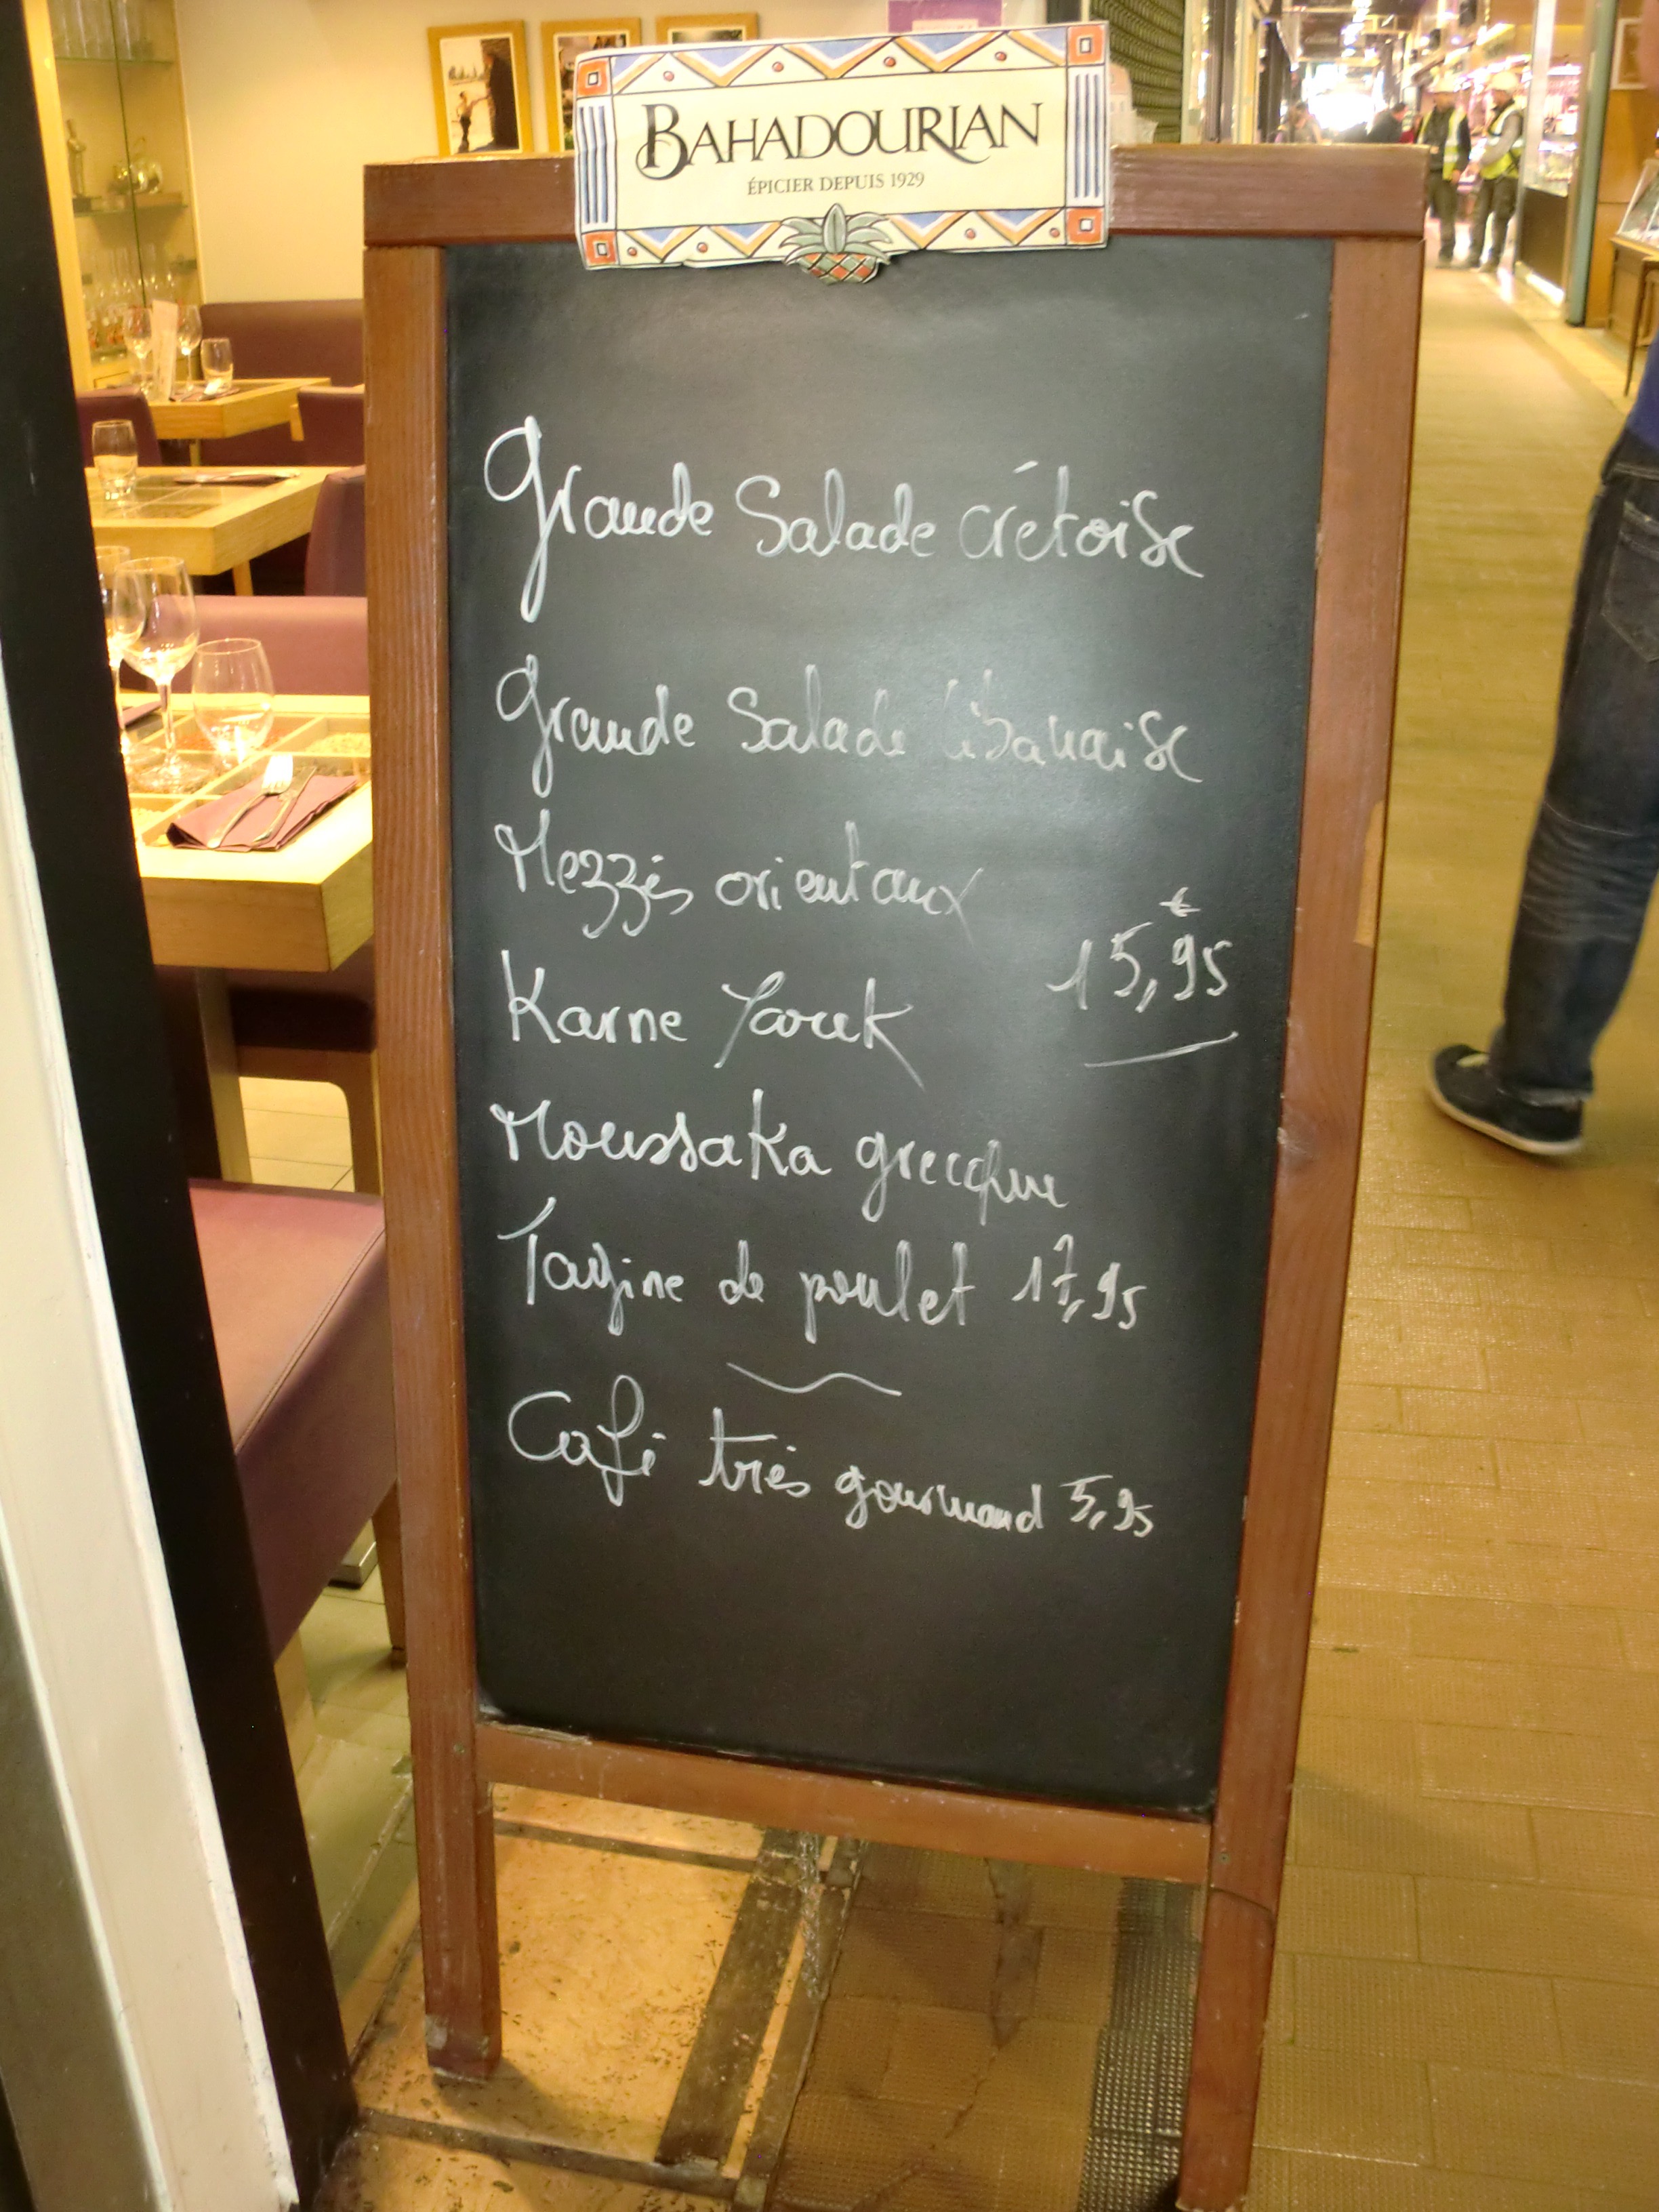 BAHADOURIAN
ÉPICIER DEPUIS 1929
Grande Salade crétoise
Grande Salade libanaise
Mezzés orientaux
€
15,95
Karne Yarek
Moussaka grecque
Tagine de poulet 17,95
Café très gourmand 5,95